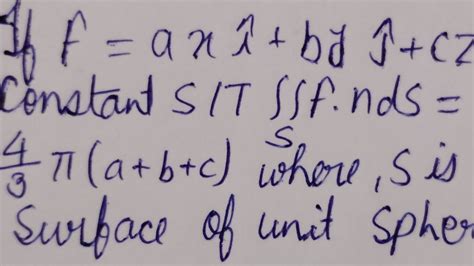 If F = a x î + b y ĵ + cz
Constant S/T ∫∫f.nds =
4/3 π (a+b+c) S where, S is
Surface of unit Spher